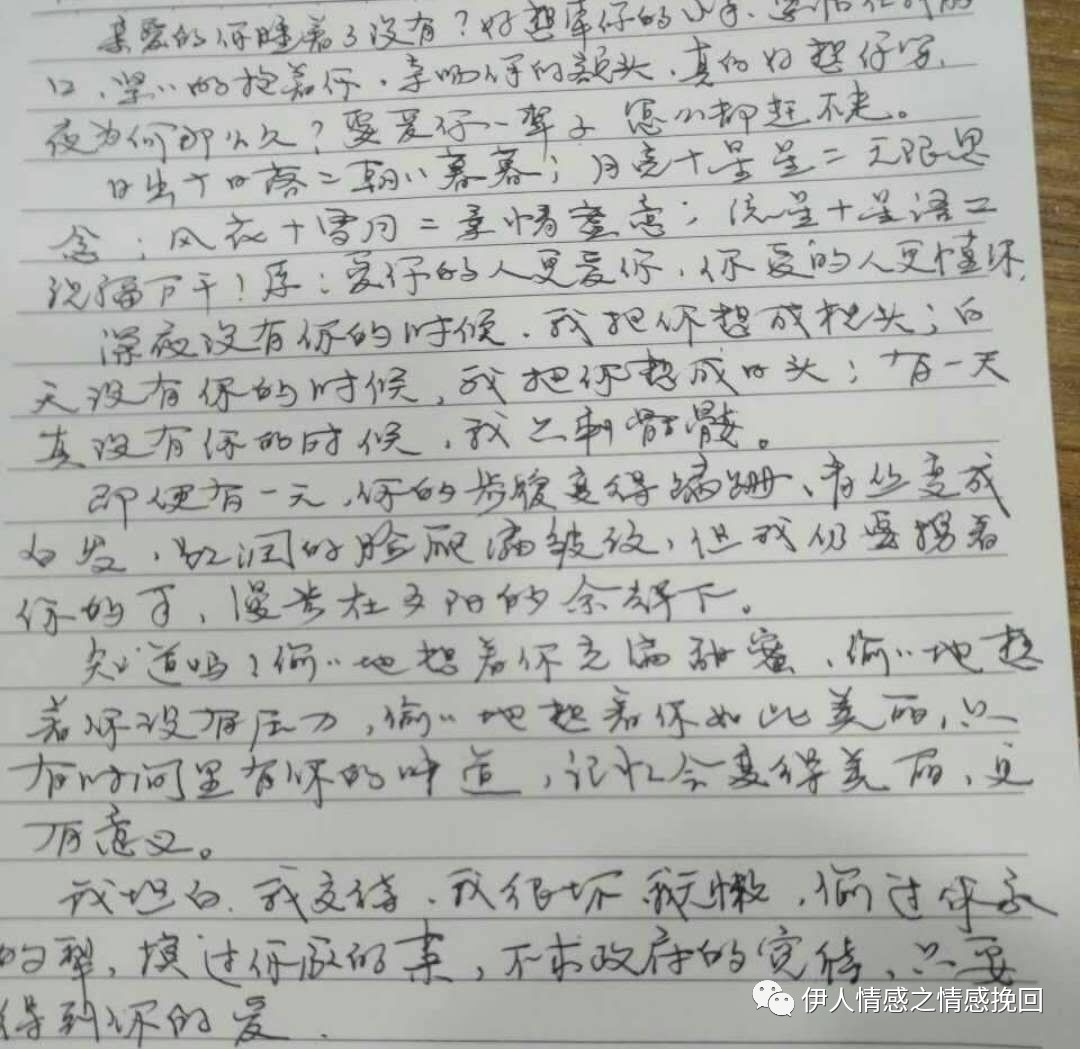 亲爱的你睡着了没有？好想牵你的小手、
口、紧〃的抱着你、亲吻你的额头、真的好想仔
夜为何那么久？要爱你一辈子 怎么都赶不走。
日出十日落二朝〃暮暮；月亮十星星二无限思
念；风花十雪月二柔情蜜意；流星十星语二
祝福万千！愿：爱你的人更爱你、你爱的人更懂你.
深夜没有你的时候、我把你想成枕头；白
天没有你的时候，我把你想成日头；有一天
真没有你的时候，我只剩骷髅。
即便有一天，你的步履变得蹒跚、青丝变成
白发，红润的脸爬满皱纹，但我仍要拥着
你的手，漫步在夕阳的余辉下。
知道吗？偷〃地想着你充满甜蜜、偷〃地想
着你没有压力，偷〃地想着你如此美丽，只
有时间里有你的味道，记忆会变得美丽、更
有意义。
我坦白. 我交待、我很坏 我无懒，偷过你家
的犁，摸过你家的菜，不求政府的宽待、只要
得到你的爱.
伊人情感之情感挽回